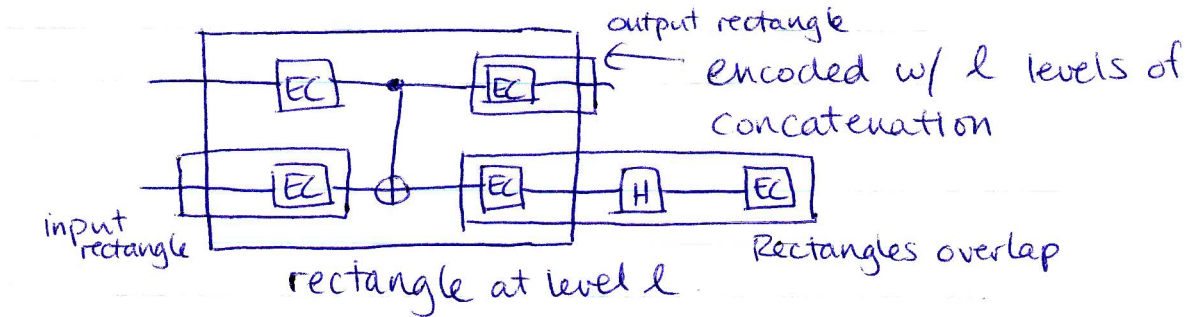 output rectangle
encoded w/ l levels of
concatenation
EC
EC
EC
EC
H
EC
input
rectangle
Rectangles overlap
rectangle at level l